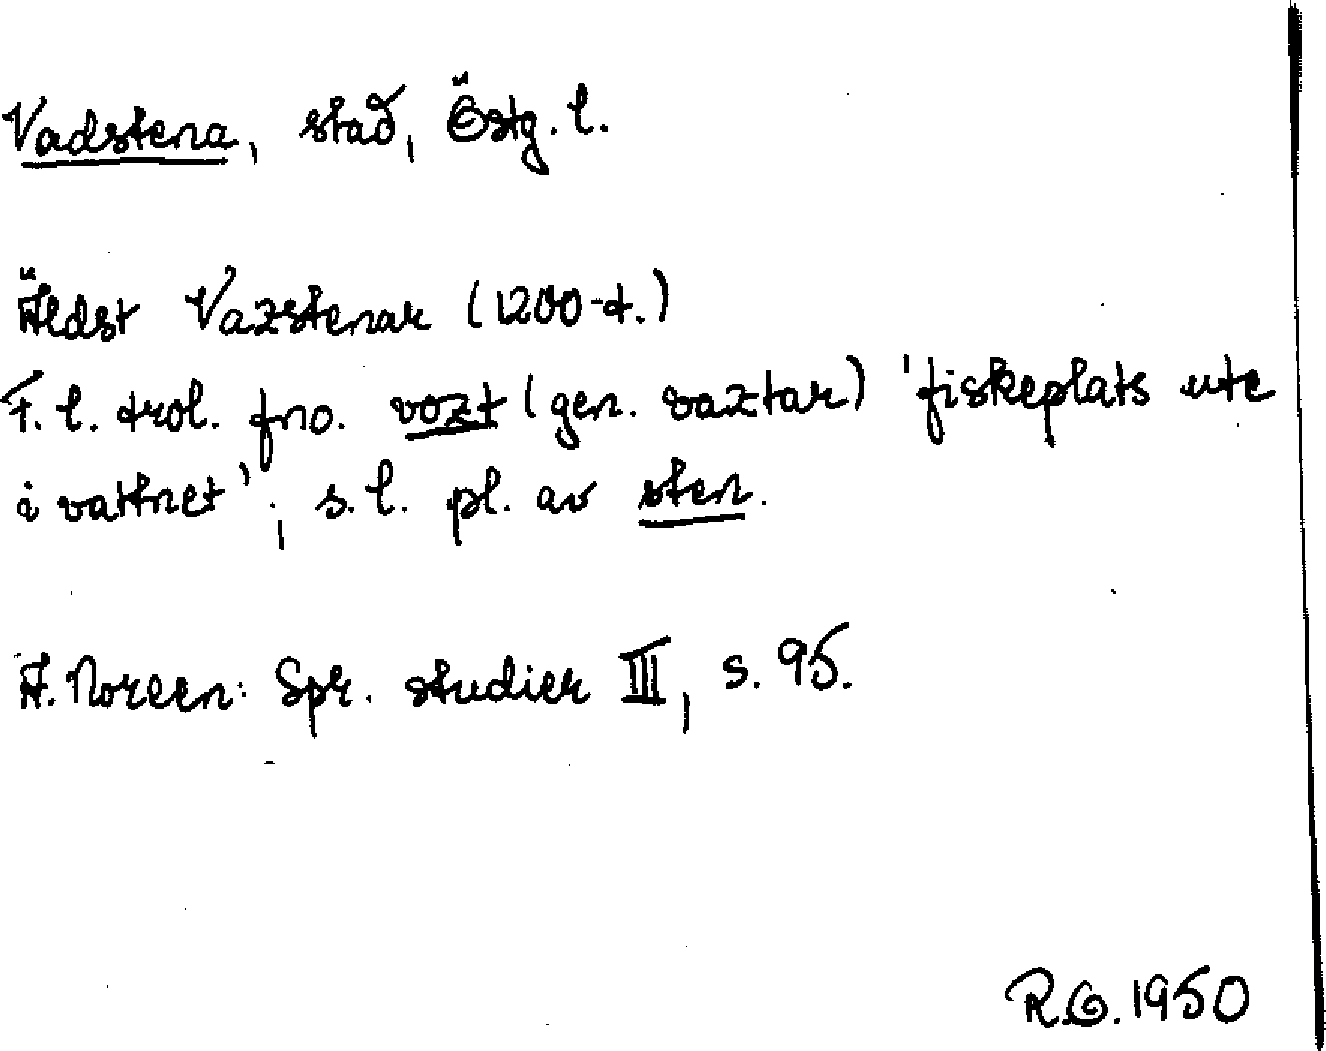 Vadstena, stad, Östg. l.
Äldst Vazstenar (1200-t.)
F. l. trol. fno. vozt (gen. vaztar) 'fiskeplats ute
i vattnet'; s. l. pl. av sten.
A. Noreen: Spr. studier III, s. 95.
R.G. 1950